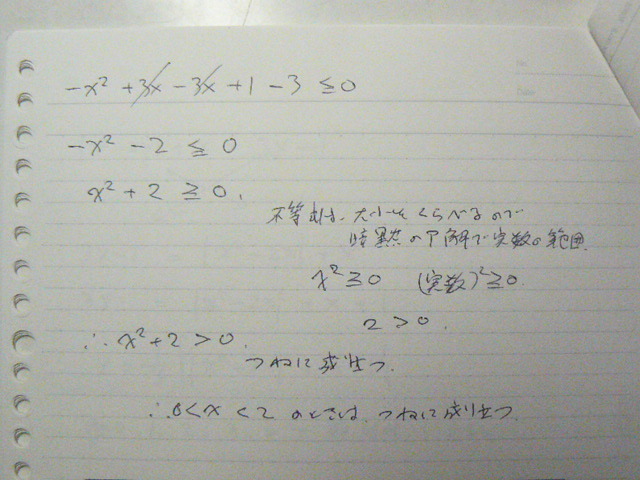 -x² + 3x - 3x + 1 - 3 ≦ 0
-x² - 2 ≦ 0
x² + 2 ≧ 0.
不等式は、大小をくらべるので
暗黙の了解で実数の範囲
x² ≧ 0 (実数)² ≧ 0.
2 > 0.
∴ x² + 2 > 0.
つねに成立つ.
∴ 0 < x < 2 のときは、つねに成り立つ